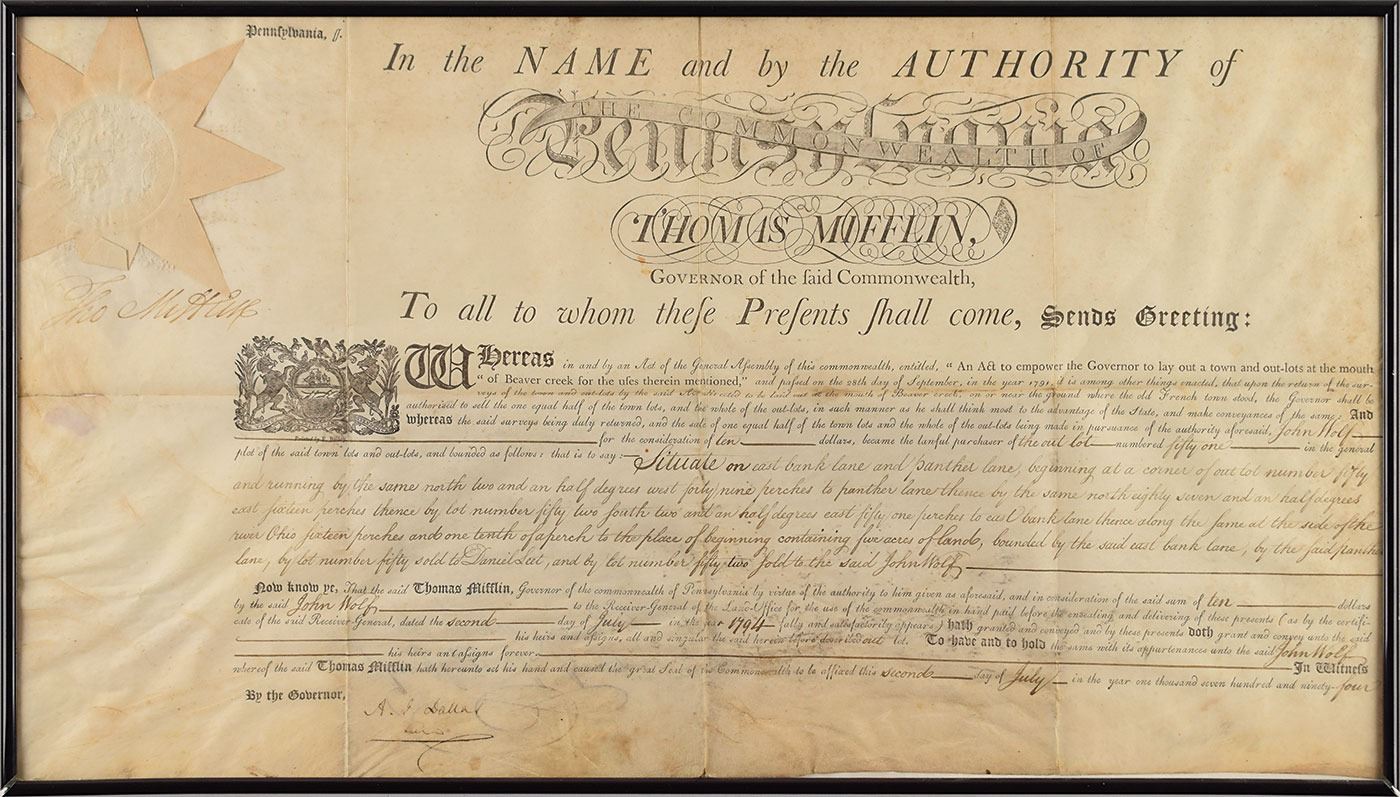 Pennſylvania, ſſ.
In the NAME and by the AUTHORITY of
THE COMMONWEALTH OF
Pennsylvania
THOMAS MIFFLIN,
GOVERNOR of the ſaid Commonwealth,
To all to whom theſe Preſents ſhall come, Sends Greeting:
Tho Mifflin
WHereas in and by an Act of the General Aſſembly of this commonwealth, entitled, “ An Act to empower the Governor to lay out a town and out-lots at the mouth
“ of Beaver creek for the uſes therein mentioned,” and paſſed on the 28th day of September, in the year 1791, it is among other things enacted, that upon the return of the sur-
veys of the town and out-lots by the said Act directed to be laid out at the mouth of Beaver creek, on or near the ground where the old French town stood, the Governor shall be
authorised to sell the one equal half of the town lots, and the whole of the out-lots, in such manner as he shall think most to the advantage of the State, and make conveyances of the same: And
whereas the said surveys being duly returned, and the sale of one equal half of the town lots and the whole of the out-lots being made in pursuance of the authority aforesaid, John Wolf
for the consideration of ten dollars, became the lawful purchaser of the out lot numbered fifty one in the general
plot of the said town lots and out-lots, and bounded as follows: that is to say:— Situate on east bank lane and panther lane, beginning at a corner of out lot number fifty
and running by the same north two and an half degrees west forty nine perches to panther lane thence by the same north eighty seven and an half degrees
east sixteen perches thence by lot number fifty two south two and an half degrees east fifty one perches to east bank lane thence along the same at the side of the
river Ohio sixteen perches and one tenth of a perch to the place of beginning containing five acres of land, bounded by the said east bank lane, by the said panther
lane, by lot number fifty sold to Daniel Leet, and by lot number fifty two sold to the said John Wolf
Now know ye, That the said Thomas Mifflin, Governor of the commonwealth of Pennsylvania by virtue of the authority to him given as aforesaid, and in consideration of the said sum of ten dollars
by the said John Wolf to the Receiver-General of the Land-Office for the use of the commonwealth in hand paid before the ensealing and delivering of these presents (as by the certifi-
cate of the said Receiver General, dated the second day of July in the year 1794 fully and satisfactorily appears) hath granted and conveyed and by these presents doth grant and convey unto the said
his heirs and assigns, all and singular the said herein before described out lot. To have and to hold the same with its appurtenances unto the said John Wolf
his heirs and assigns forever. In Witneſs
whereof the said Thomas Mifflin hath hereunto set his hand and caused the great Seal of the Commonwealth to be affixed this second day of July in the year one thousand seven hundred and ninety-four
By the Governor,
A. J. Dallas